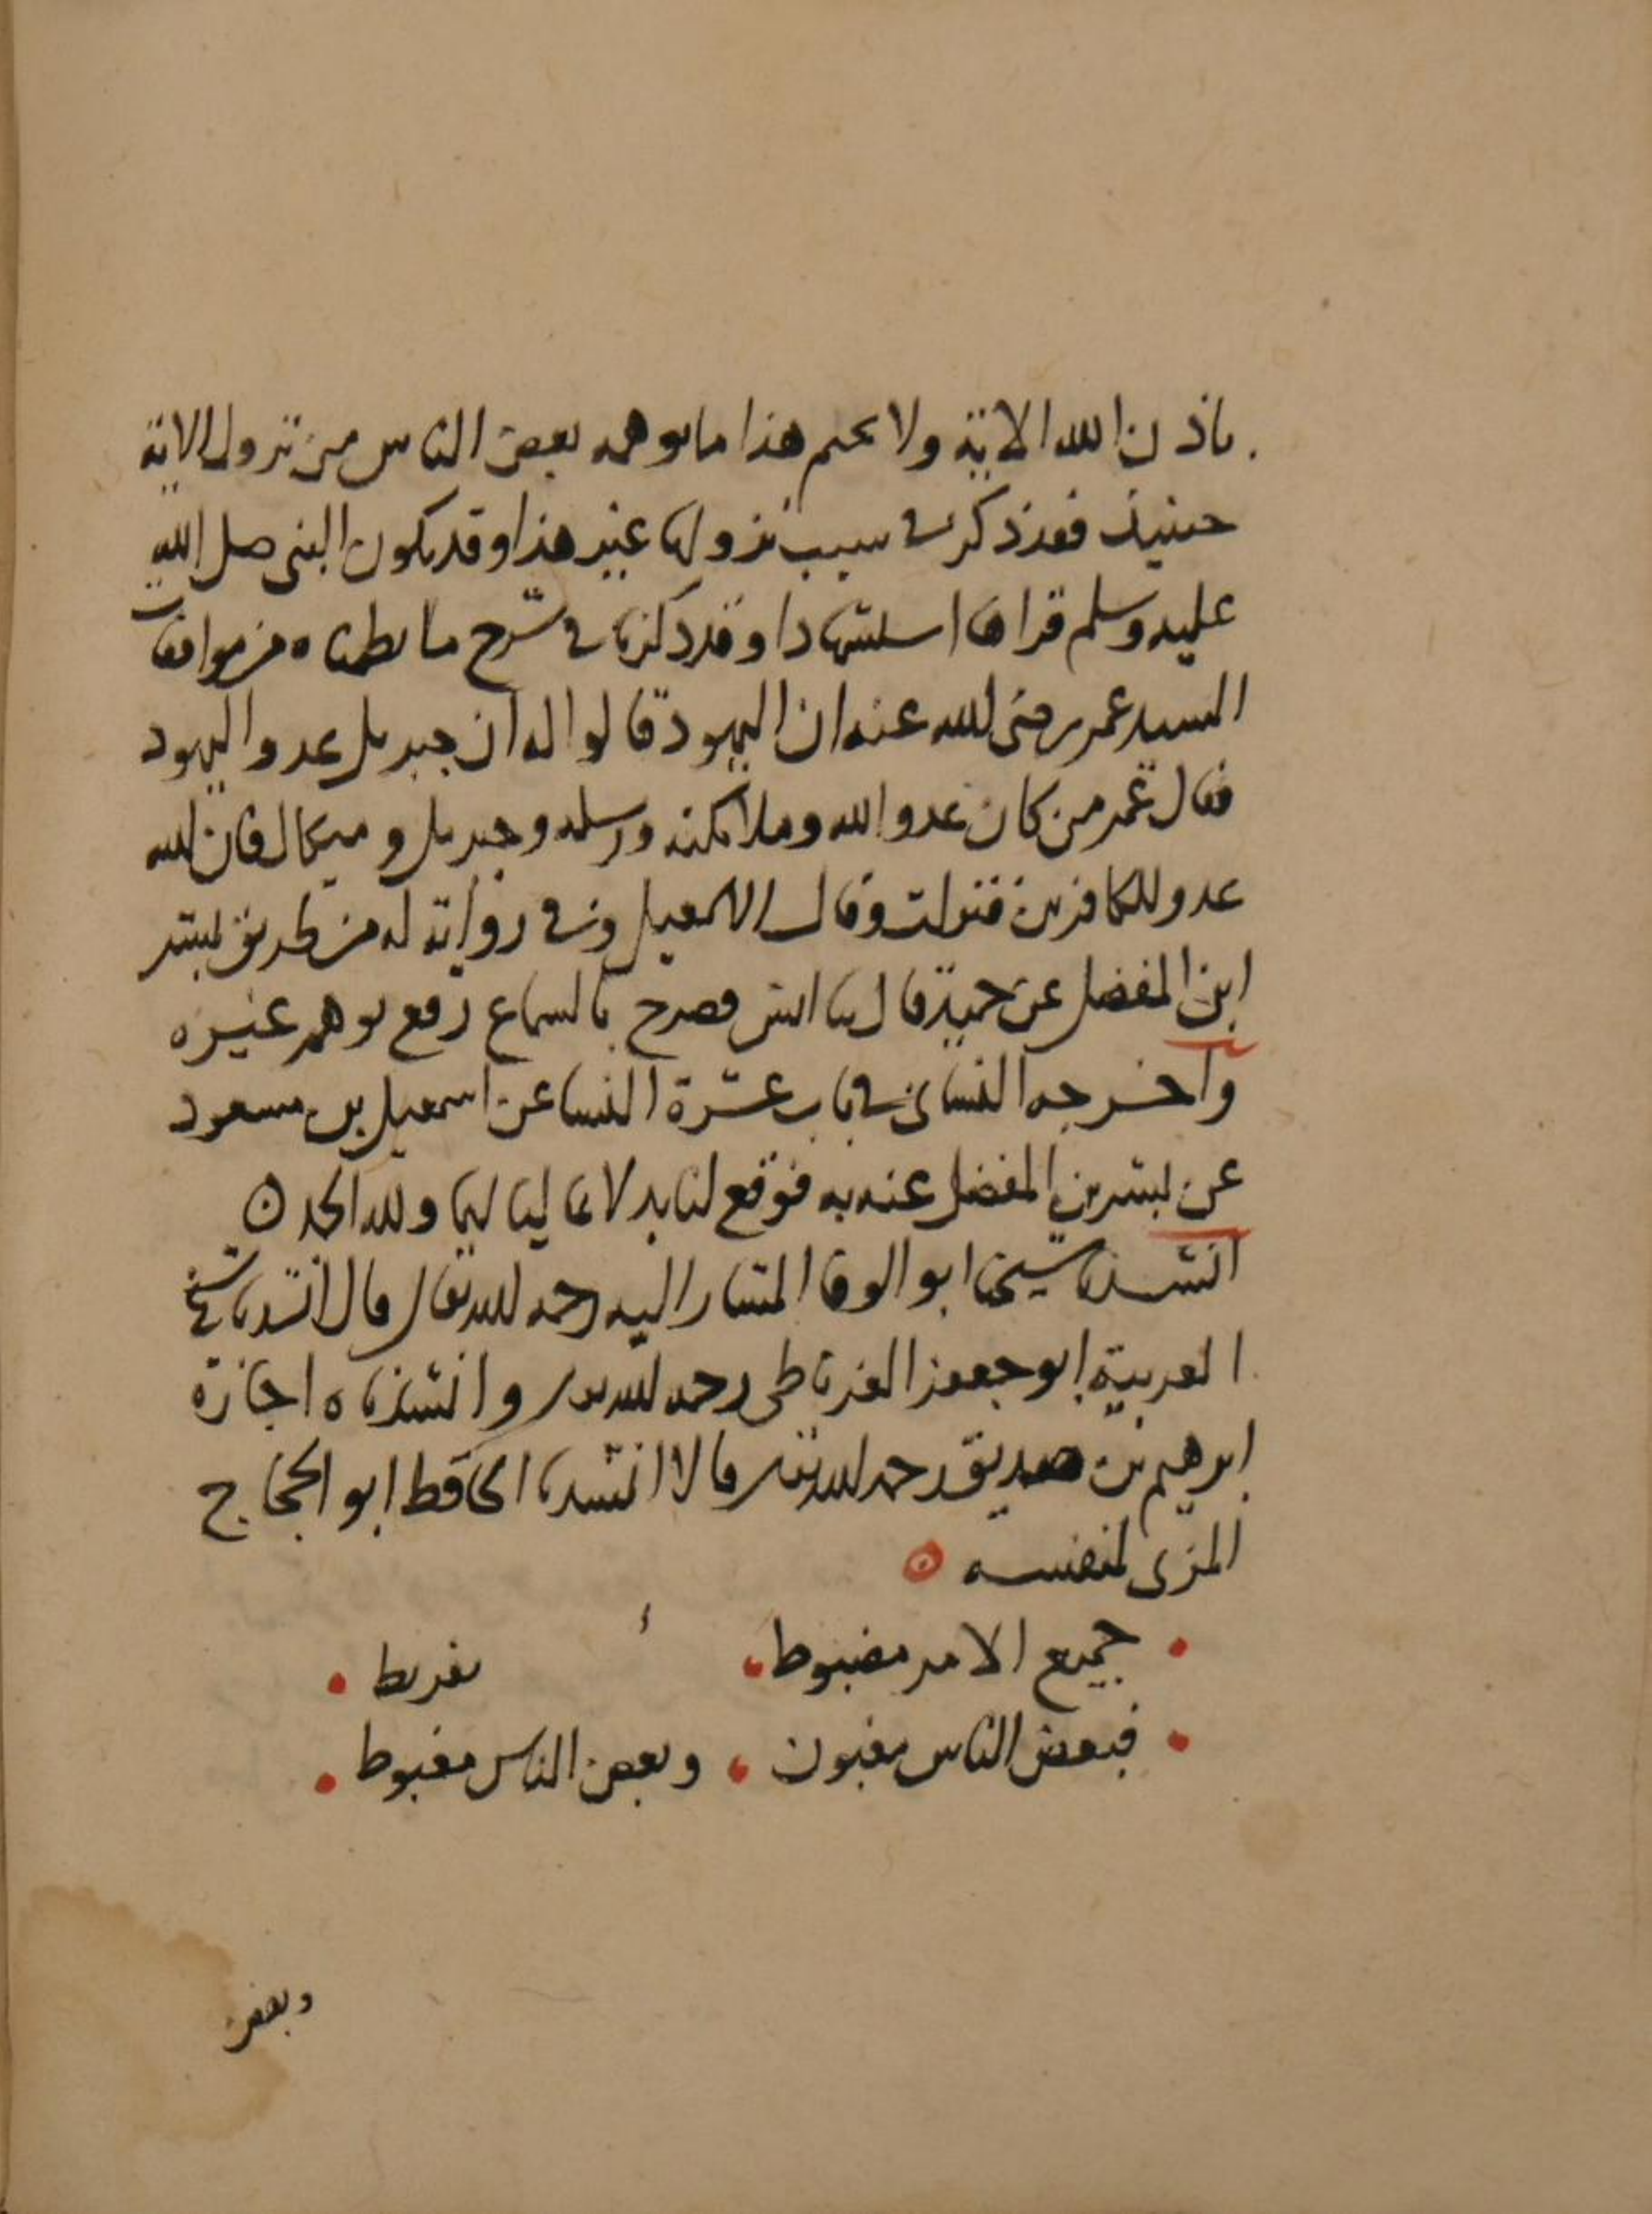 باذن الله الاية ولا هذا ما يوهمه بعض الناس من نزول الاية
حينيذ فقد ذكر في سبب نزولها غير هذا وقد يكون النبى صلى الله
عليه وسلم قراها استشهادا وقد ذكرنا في شرح ما نظمناه من موافقات
السيد عمر رضى الله عنه ان اليهود قالوا له ان جبريل عدو اليهود
فقال عمر من كان عدوا لله وملائكته ورسله وجبريل وميكال فان الله
عدو للكافرين فنزلت وقال الاسمعيلى وفي رواية له من طريق بشر
ابن المفضل عن حميد قال نا انس فصرح بالسماع رفع توهم غيره
واخرجه النساى في باب عشرة النسا عن اسمعيل بن مسعود
عن بشر بن المفضل عنه به فوقع لنا بدلا عاليا ولله الحمد
انشدنا شيخنا ابو الوفا المشار اليه رحمه الله تعالى قال انشدنا شيخ
العربية ابو جعفر الغرناطى رحمه الله تعالى وانشدناه اجازة
ابرهيم بن صديق رحمه الله تعالى قالا انشدنا الحافظ ابو الحجاج
المزى لنفسه
جميع الامر مضبوط تفريط
فبعض الناس مغبون وبعض الناس مغبوط
وبعض